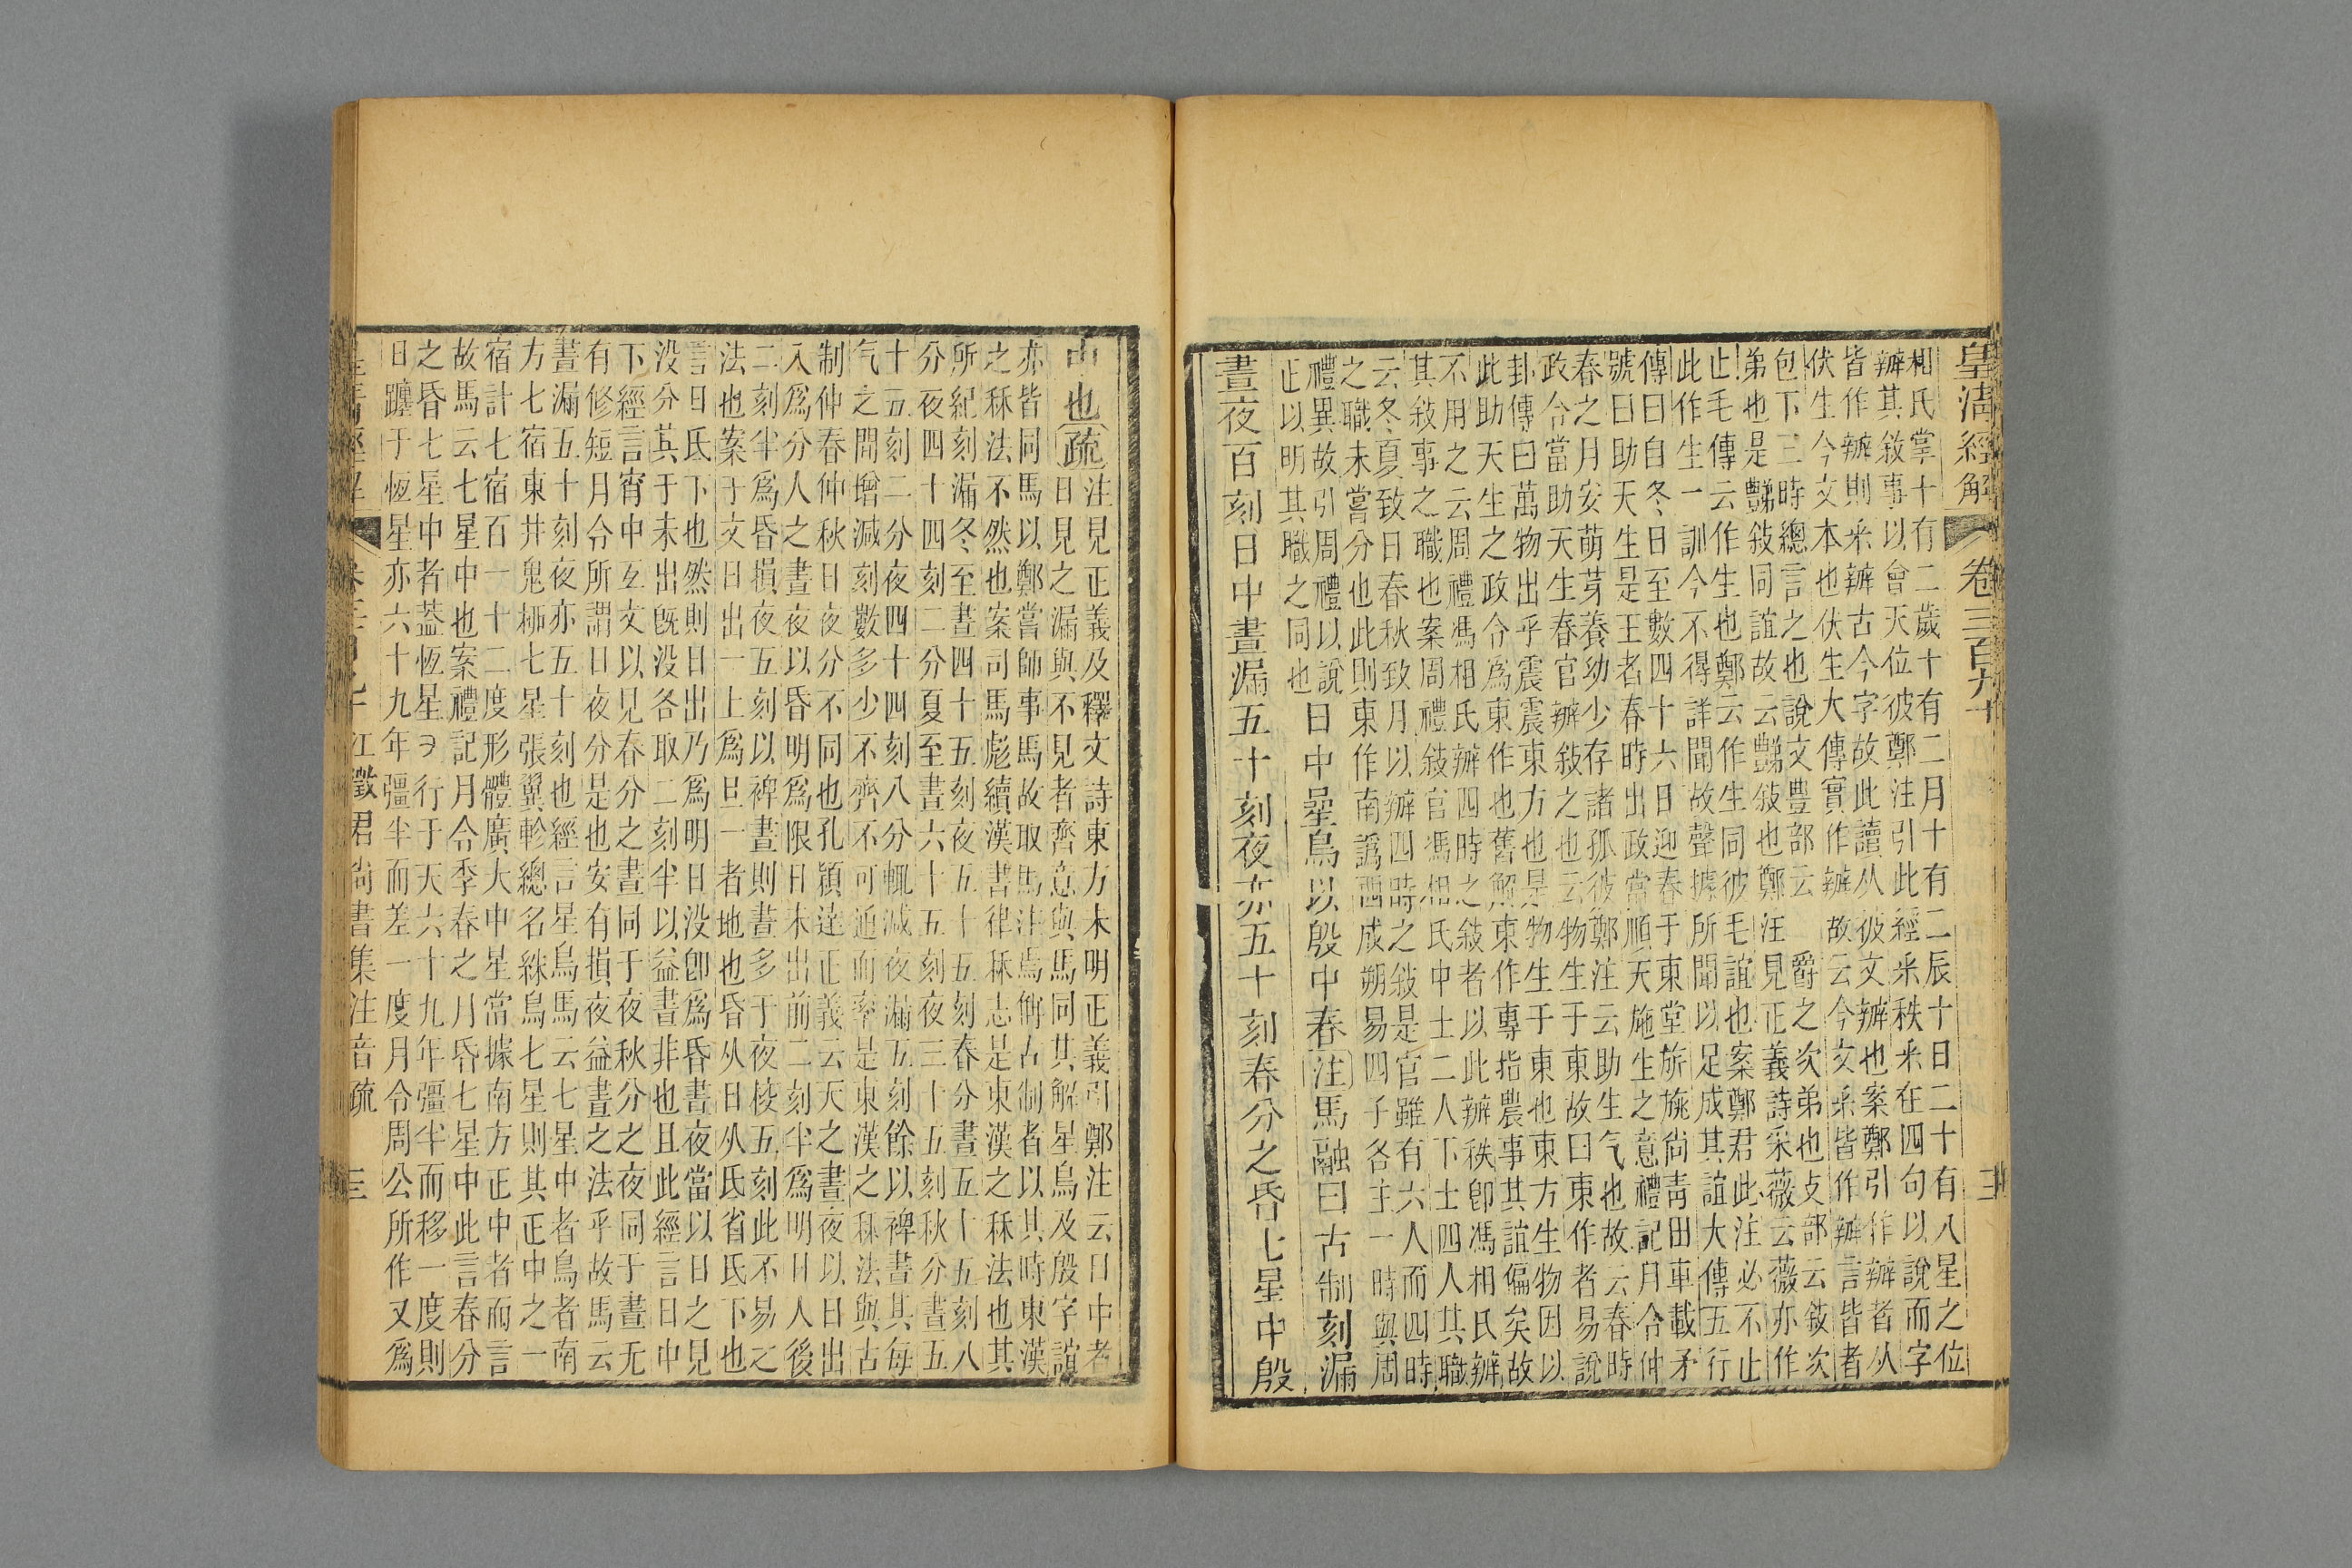 皇清經解 卷三百九十 三
相氏掌十有二歲十有二月十有二辰十日二十有八星之位
辧其敘事以會天位彼鄭注引此經釆秩釆在四句以說而字
皆作辧則釆辧古今字故此讀从彼文辧也案鄭引作辧者从
伏生今文本也伏生大傳實作辧故云今文釆皆作辧言皆者
包下三時總言之也說文豐部云爵之次弟也攴部云敘次
弟也是豑敘同誼故云豑敘也鄭注見正義詩采薇云薇亦作
止毛傳云作生也鄭云作生同彼毛誼也案鄭君此注必不止
此作生一訓今不得詳聞故聲據所聞以足成其誼大傳五行
傳曰自冬日至數四十六日迎春于東堂旂旐尙靑田車載矛
號曰助天生是王者春時出政當順天施生之意禮記月令仲
春之月安萌芽養幼少存諸孤彼鄭注云助生气也故云春時
政令當助天生春官辧敘之也云物生于東故曰東作者易說
卦傳曰萬物出乎震震東方也是物生于東也東方生物因以
此助天生之政令爲東作也舊解東作專指農事其誼偏矣故
不用之云周禮馮相氏辧四時之敘者以此辧秩卽馮相氏辧
其敘事之職也案周禮敘官馮相氏中士二人下士四人其職
云冬夏致日春秋致月以辧四時之敘是官雖有六人而四時
之職未嘗分也此則東作南譌西成朔易四子各主一時與周
禮異故引周禮以說
正以明其職之同也
日中曐鳥以殷中春注馬融曰古制刻漏
晝夜百刻日中晝漏五十刻夜亦五十刻春分之昏七星中殷
中也疏
注見正義及釋文詩東方未明正義引鄭注云日中者
日見之漏與不見者齊意與馬同其解星鳥及殷字誼
亦皆同馬以鄭嘗師事馬故取馬注焉偁古制者以其時東漢
之秝法不然也案司馬彪續漢書律秝志是東漢之秝法也其
所紀刻漏冬至晝四十五刻夜五十五刻春分晝五十五刻八
分夜四十四刻二分夏至晝六十五刻夜三十五刻秋分晝五
十五刻二分夜四十四刻八分輒減夜漏五刻餘以裨晝其每
气之間增減刻數多少不齊不可通而率是東漢之秝法與古
制仲春仲秋日夜分不同也孔穎達正義云天之晝夜以日出
入爲分人之晝夜以昏明爲限日未出前二刻半爲明日人後
二刻半爲昏損夜五刻以裨晝則晝多于夜校五刻此不易之
法也案于文日出一上爲旦一者地也昏从日从氐省氐下也
言日氐下也然則日出乃爲明日没卽爲昏晝夜當以日之見
没分其于未出旣没各取二刻半以益晝非也且此經言日中
下經言宵中互文以見春分之晝同于夜秋分之夜同于晝无
有修短月令所謂日夜分是也安有損夜益晝之法乎故馬云
晝漏五十刻夜亦五十刻也經言星鳥馬云七星中者鳥者南
方七宿東井鬼桺七星張翼軫總名絑鳥七星則其正中之一
宿計七宿百一十二度形體廣大中星當據南方正中者而言
故馬云七星中也案禮記月令季春之月昏七星中此言春分
之昏七星中者蓋恆星ヲ行于天六十九年彊半而移一度則
日躔于恆星亦六十九年彊半而差一度月令周公所作又爲
皇淸經解 江徵君尙書集注音疏 三